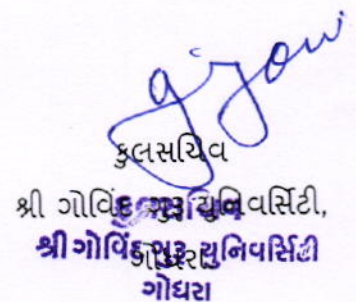 કુલસચિવ
શ્રી ગોવિંદ ગુરુ યુનિવર્સિટી,
કુલસચિવ
ગોધરા
શ્રી ગોવિંદ ગુરુ યુનિવર્સિટી
ગોધરા